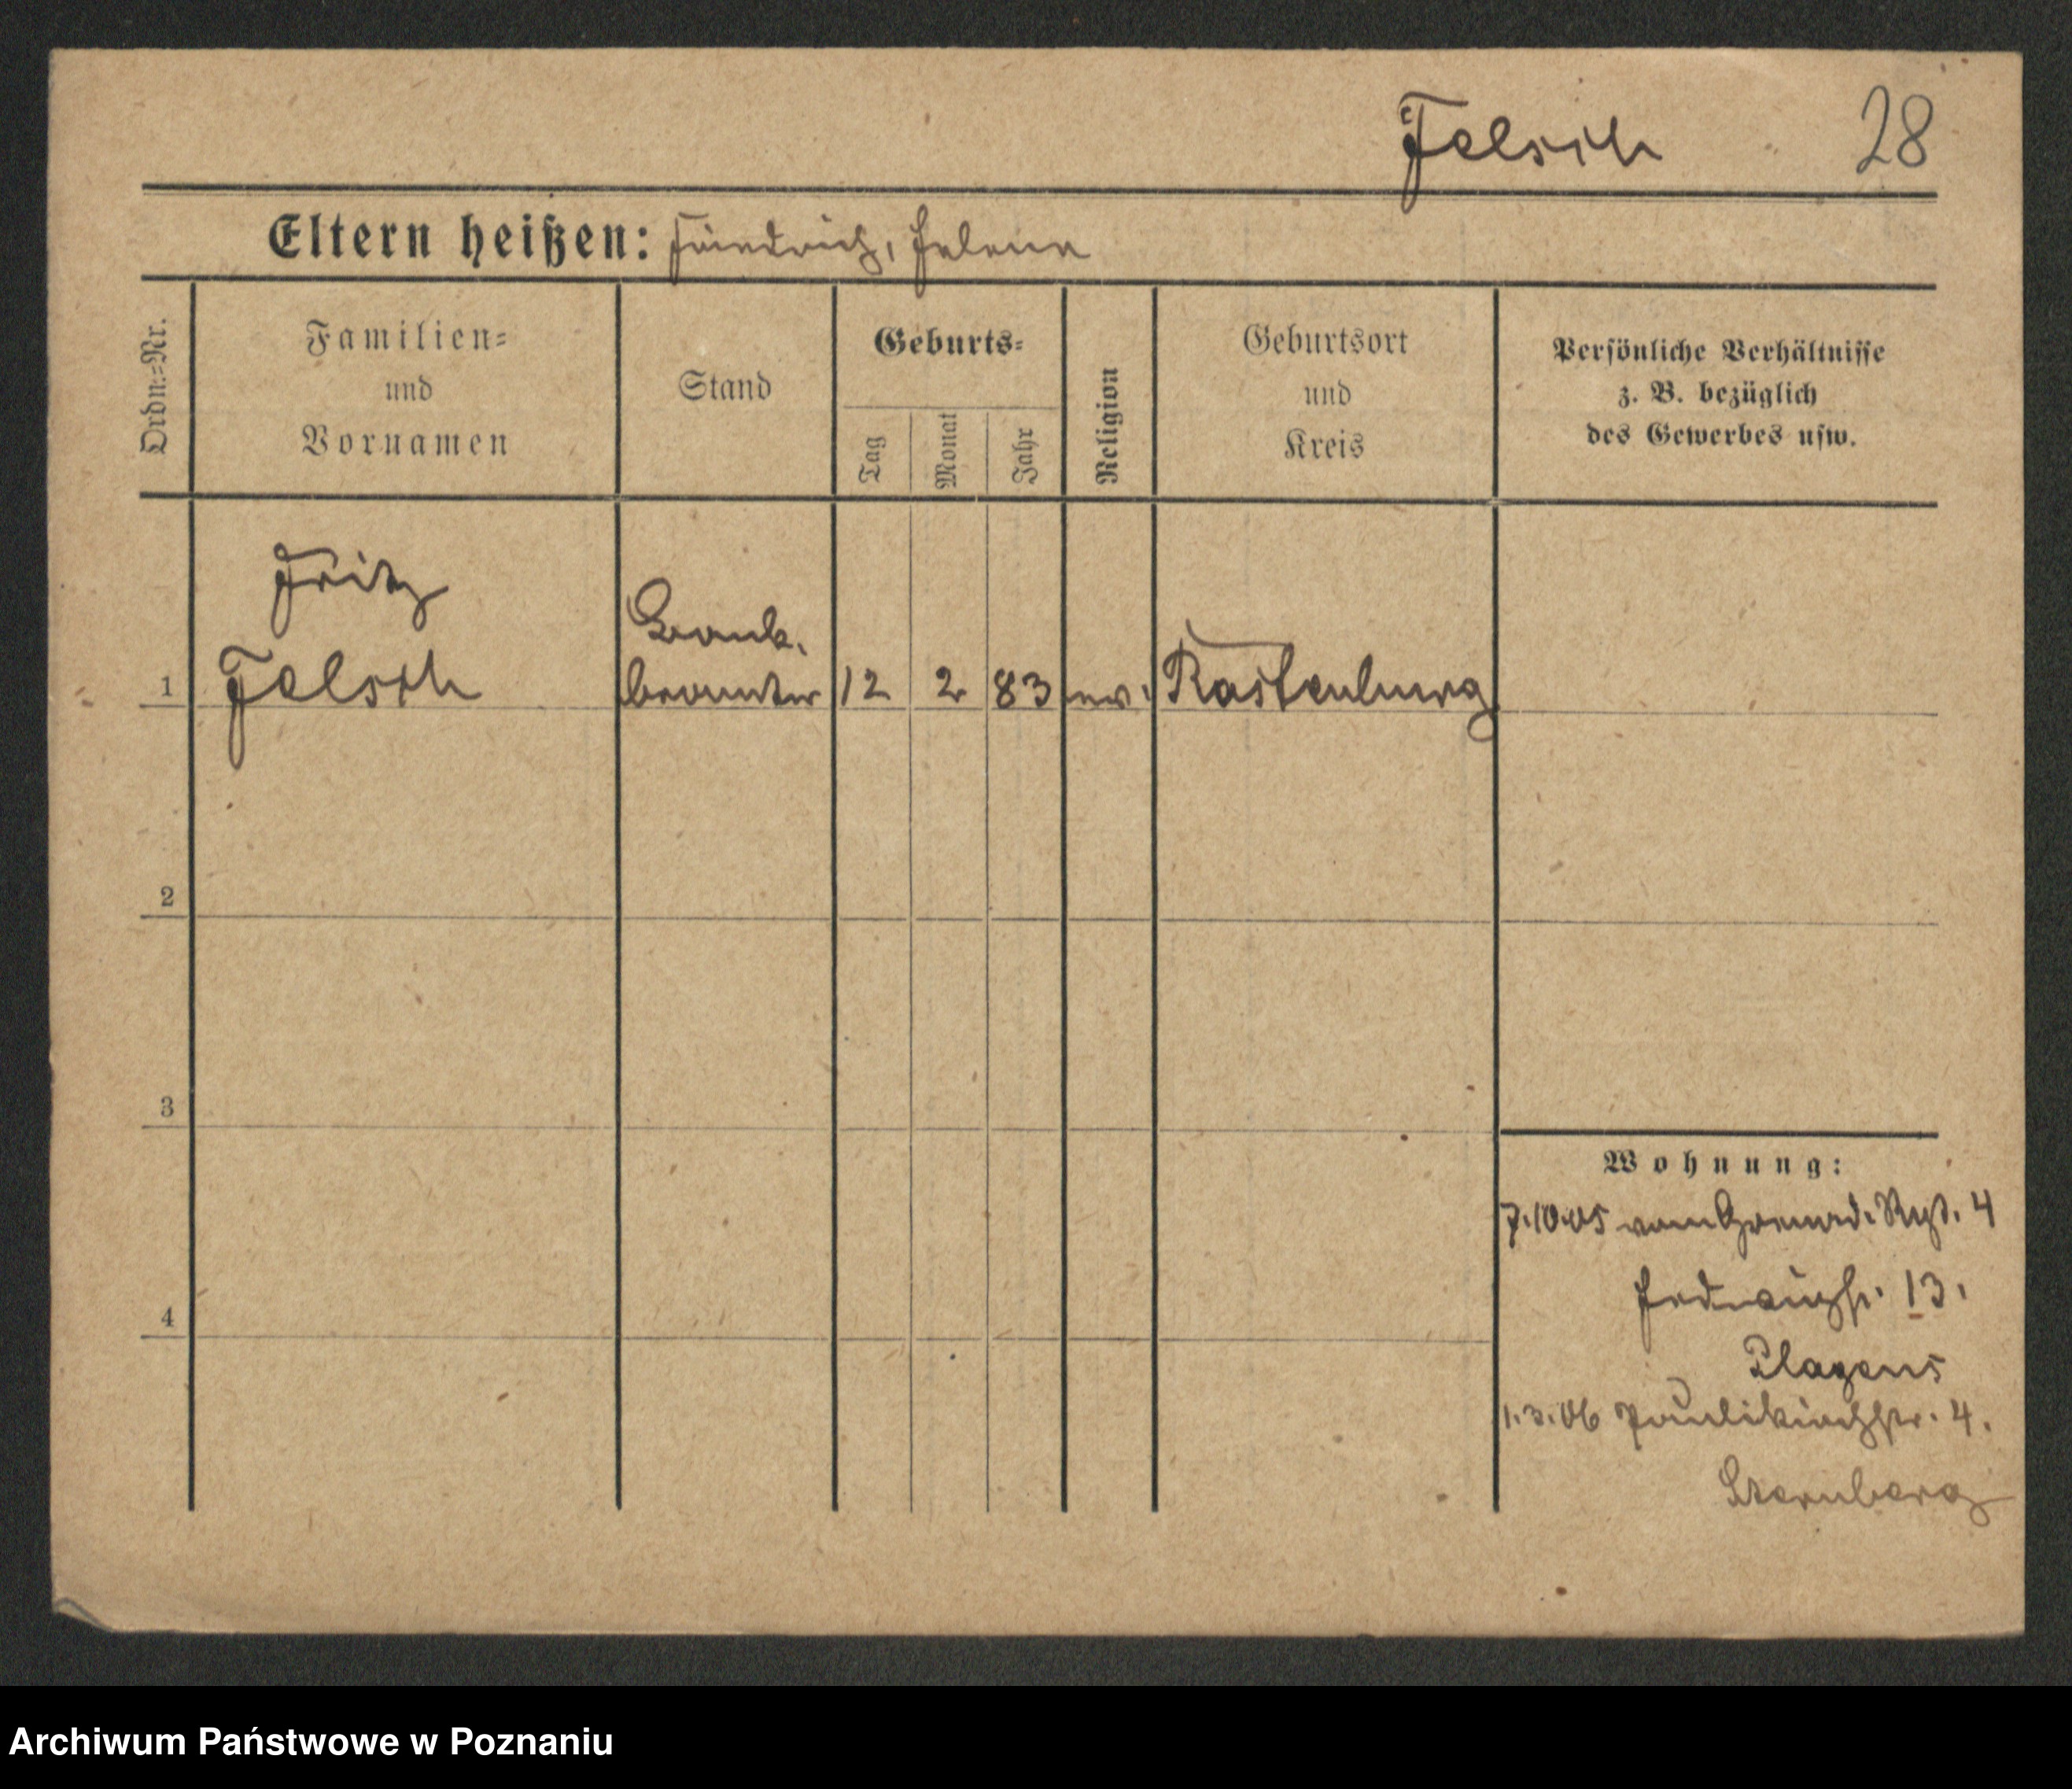 Felsch 28
Eltern heißen: Friedrich, Helene
Ordn.=Nr.
Familien=
und
Vornamen
Stand
Geburts=
Tag
Monat
Jahr
Religion
Geburtsort
und
Kreis
Persönliche Verhältnisse
z. B. bezüglich
des Gewerbes usw.
Fritz
Bank.
1 Felsch beamter 12 2 83 ev. Rastenburg
2
3
4
Wohnung:
7.10.05 vom Grenad. Regt. 4
Hedwigstr. 13.
Plagens
1.3.06 Paulikirchstr. 4.
Sternberg
Archiwum Państwowe w Poznaniu